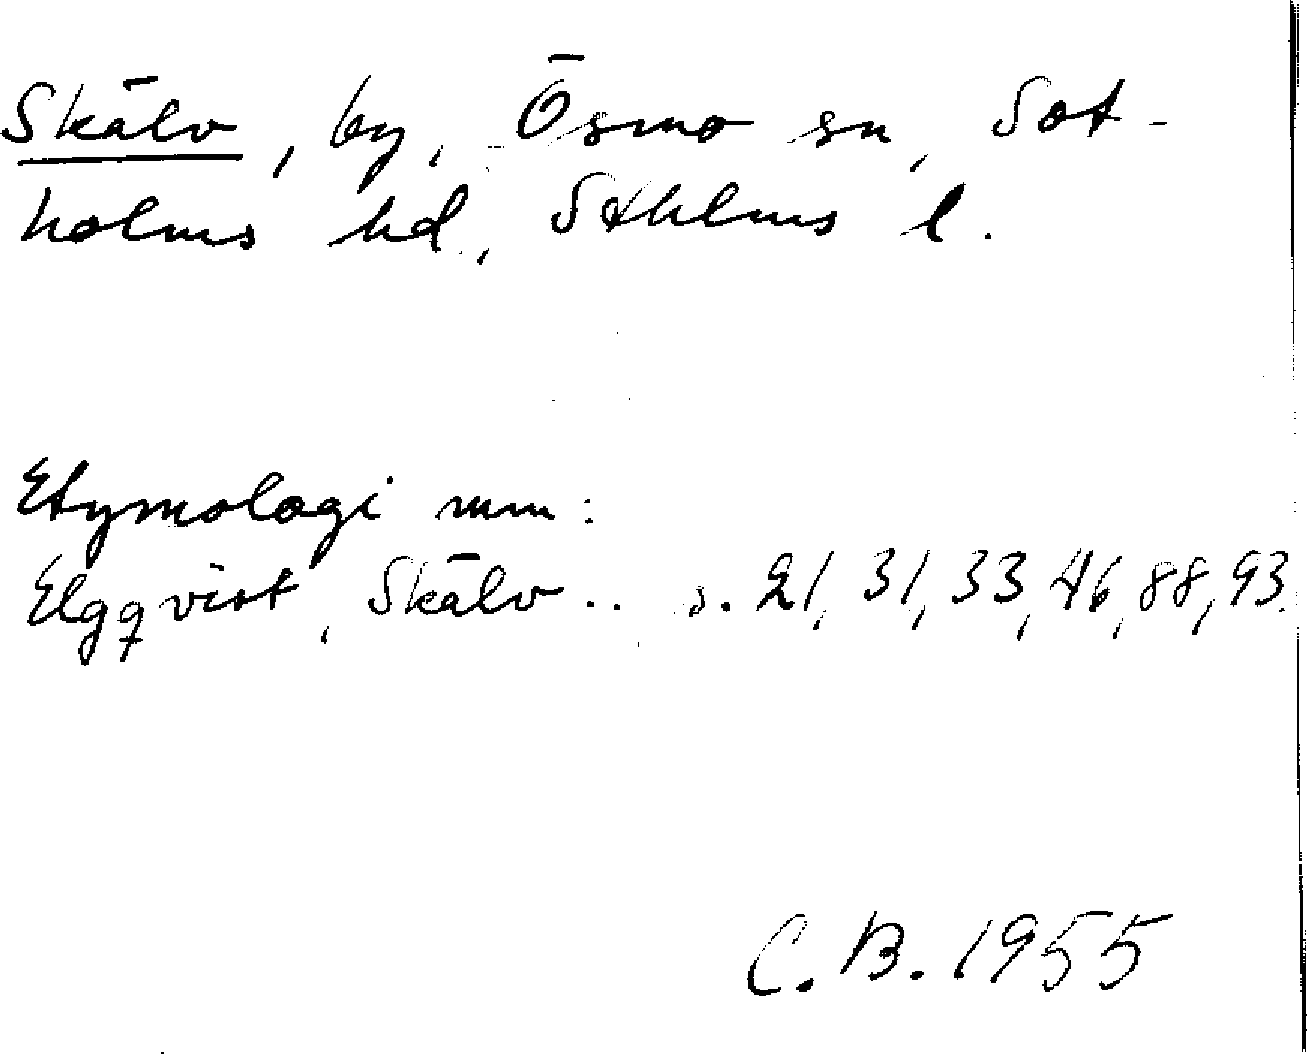 Skälv, by, Ösmo sn, Sot-
holms hd, Sthlms l.
Etymologi mm:
Elgqvist, Skälv.. s. 21, 31, 33, 46, 88, 93.
C. B. 1955